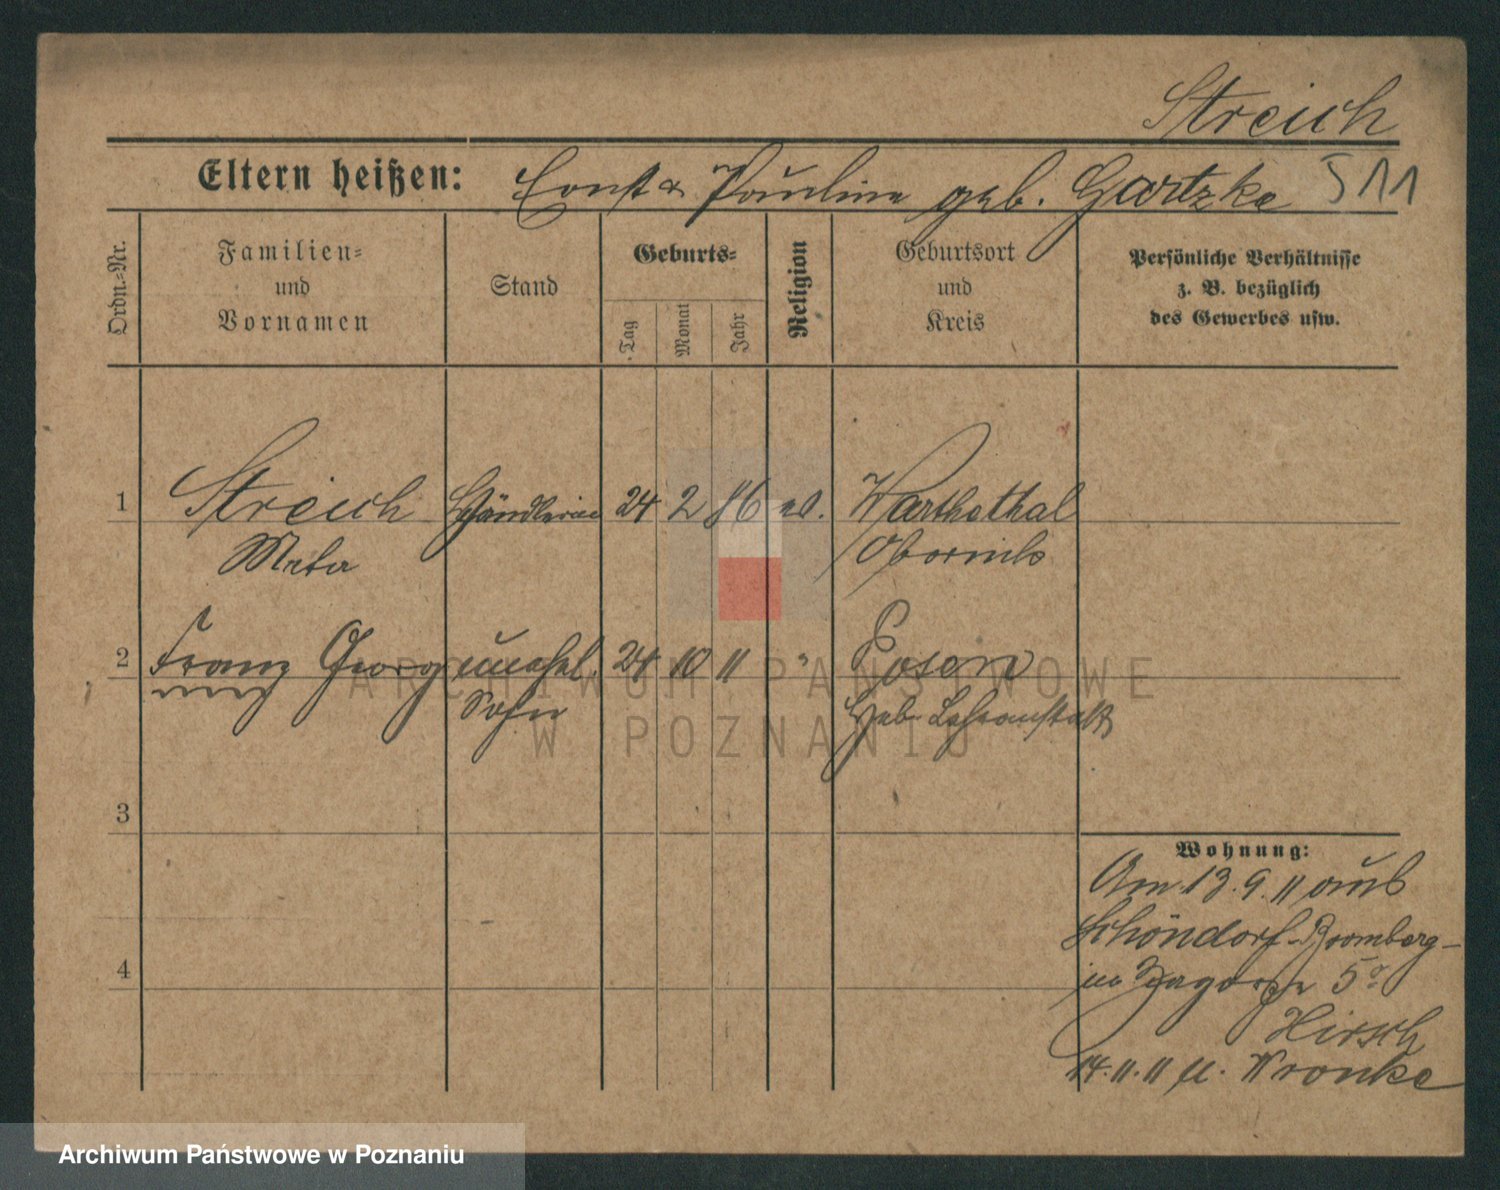 Streich
Eltern heißen: Ernst & Pauline geb. Gartzke 511
Ordn.-Nr.
Familien-
und
Vornamen
Stand
Geburts-
Tag
Monat
Jahr
Religion
Geburtsort
und
Kreis
Persönliche Verhältnisse
z. B. bezüglich
des Gewerbes usw.
1 Streich Händlerin 24 2 86 ev. Warthethal
Meta Obornik
2 Franz Georg unehel. 24 10 11 " Posen
Sohn Heb. Lehranstalt
3
Wohnung:
Am 13.9.11 aus
Schöndorf-Bromberg-
in 5
4
Hirsch
14.11.11 n. Wronke
ARCHIWUM PAŃSTWOWE
W POZNANIU
Archiwum Państwowe w Poznaniu